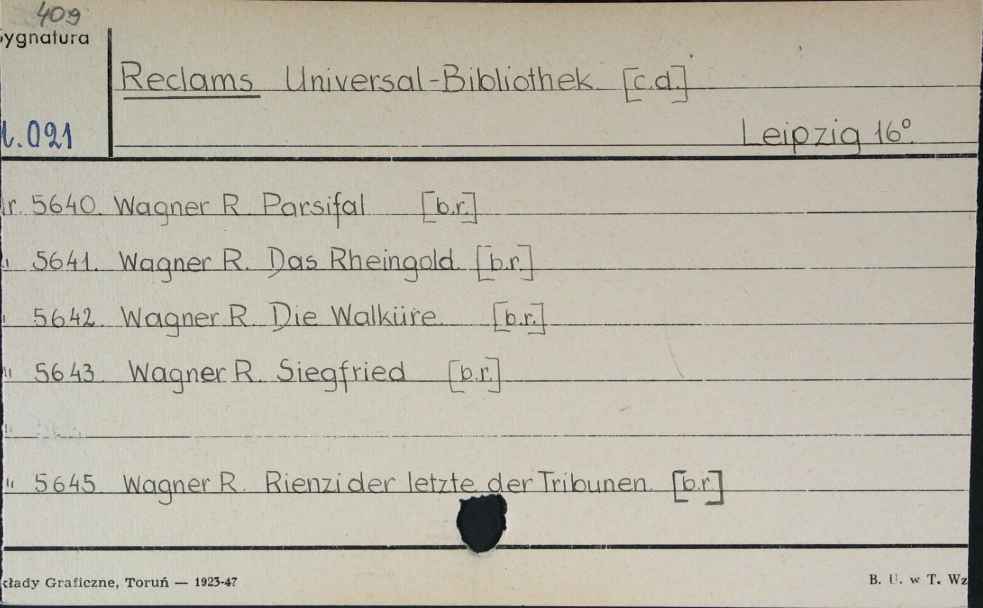 409
ygnatura
Reclams Universal-Bibliothek [c.d.]
.021
Leipzig 16°.
r. 5640. Wagner R. Parsifal [b.r.]
" 5641. Wagner R. Das Rheingold. [b.r.]
" 5642. Wagner R. Die Walküre. [b.r.]
" 5643. Wagner R. Siegfried [b.r.]
"
" 5645. Wagner R. Rienzi der letzte der Tribunen. [b.r.]
kłady Graficzne, Toruń — 1923-47
B. U. w T. Wz